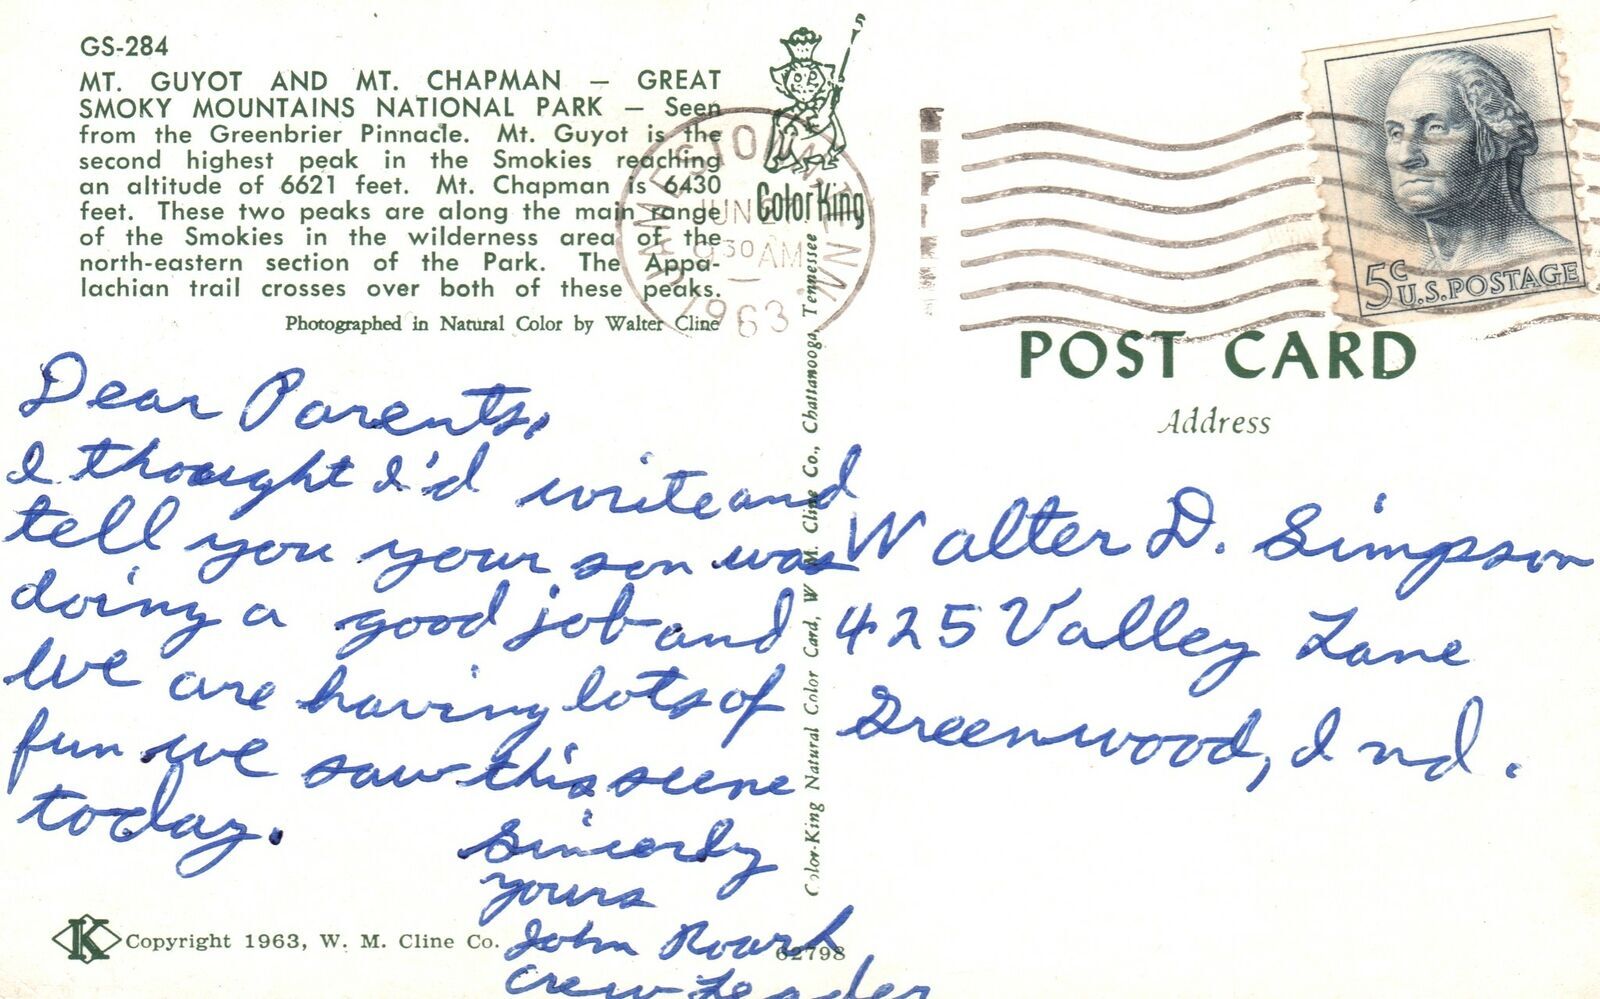 GS-284
MT. GUYOT AND MT. CHAPMAN — GREAT
SMOKY MOUNTAINS NATIONAL PARK — Seen
from the Greenbrier Pinnacle. Mt. Guyot is the
second highest peak in the Smokies reaching
an altitude of 6621 feet. Mt. Chapman is 6430
feet. These two peaks are along the main range
of the Smokies in the wilderness area of the
north-eastern section of the Park. The Appa-
lachian trail crosses over both of these peaks.
Photographed in Natural Color by Walter Cline
Color King
JAMESTOWN TENN
JUN
30 AM
1963
5c
U.S. POSTAGE
POST CARD
Address
Dear Parents,
I thought I'd write and
tell you your son was
doing a good job and
we are having lots of
fun we saw this scene
today.
Sincerly
yours
John Roark
Crew Leader
Walter D. Simpson
425 Valley Lane
Greenwood, Ind.
Color-King Natural Color Card, W. M. Cline Co., Chattanooga, Tennessee
K Copyright 1963, W. M. Cline Co.
62798